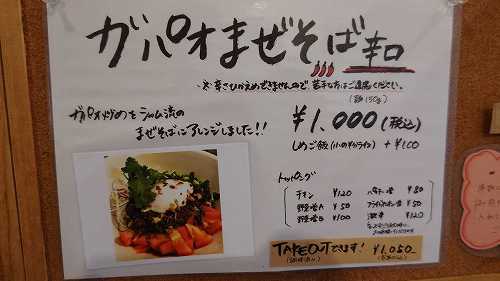 ガパオまぜそば 辛口
※ 辛さひかえめできませんので、苦手な方はご遠慮ください。
(麺150g)
ガパオ炒めをシャム流の
まぜそばにアレンジしました!!
¥1,000(税込)
しめご飯(小のすりライス) +¥100
トッピング
チキン ¥120
野菜増A ¥50
野菜増B ¥100
パクチー増 ¥80
フライドオニオン増 ¥50
激辛 ¥120
TAKEOUTできます! ¥1,050